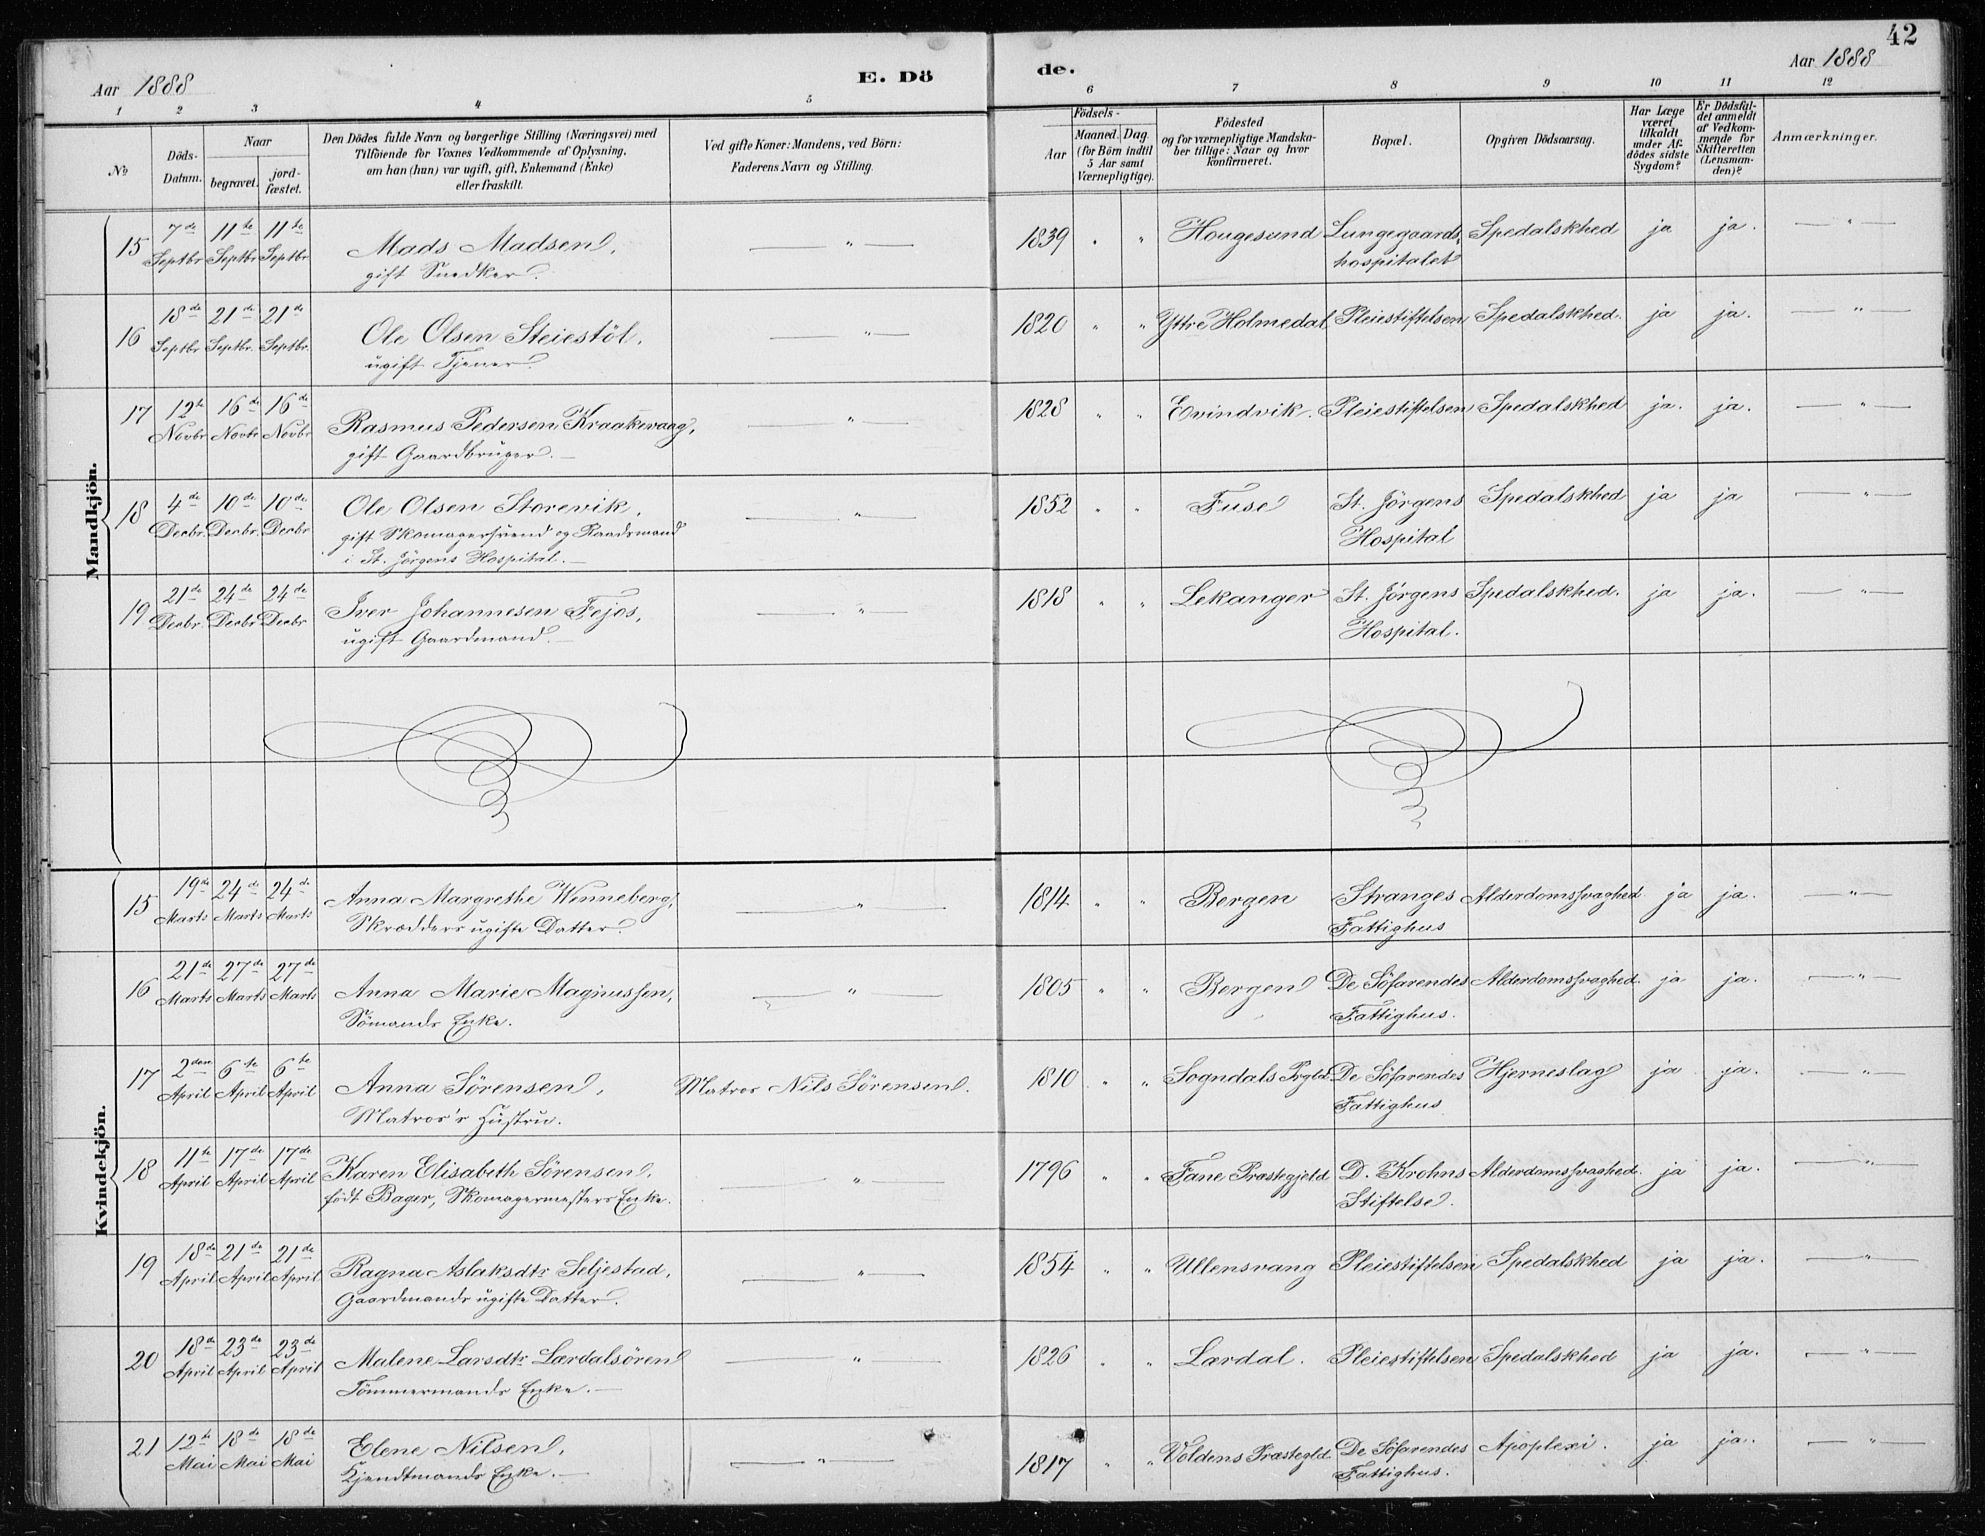 42
Aar 1888
E. Dö
de.
Aar 1888
1 2 3 4 5
6 7 8 9 10 11 12
№
Döds-
Datum.
Naar
begravet.
jord-
fæstet.
Den Dödes fulde Navn og borgerlige Stilling (Næringsvei) med
Tilföiende for Voxnes Vedkommende af Oplysning.
om han (hun) var ugift, gift, Enkemand (Enke)
eller fraskilt.
Ved gifte Koner: Mandens, ved Börn:
Faderens Navn og Stilling.
Födsels-
Aar
Maaned. Dag.
(for Börn indtil
5 Aar samt
Værnepligtige).
Födested
og for værnepligtige Mandska-
ber tillige: Naar og hvor
konfirmeret.
Bopæl.
Opgiven Dödsaarsag.
Har Læge
været
tilkaldt
under Af-
dödes sidste
Sygdom?
Er Dödsfal-
det anmeldt
af Vedkom-
mende for
Skifteretten
(Lensman-
den)?
Anmærkninger.
Mandkjön.
15 7de Septbr 11te Septbr 11te Septbr Mads Madsen, — " — 1839 " " Hougesund Lungegaards- Spedalskhed ja ja. — " —
gift Snedker. hospitalet
16 18de Septbr 21de Septbr. 21de Septbr. Ole Olsen Steiestöl, — " — 1820 " " Yttre Holmedal Pleiestiftelsen Spedalskhed. ja ja. — " —
ugift Tjener.
17 12te Novbr 16de Novbr 16de Novbr Rasmus Pedersen Kraakevaag, — " — 1828 " " Evindvik. Pleiestiftelsen Spedalskhed ja. ja. — " —
gift Gaardbruger. —
18 4de Decbr. 10de Decbr. 10de Decbr Ole Olsen Storevik, — " — 1852 " " Fuse St. Jörgens Spedalskhed ja ja — " —
gift Skomagersvend og Raadsmand Hospital
i St. Jörgens Hospital. —
19 21de Decbr. 24de Decbr 24de Decbr Iver Johannesen Fejos, — " — 1818 " " Lekanger St. Jörgens Spedalskhed. ja ja. — " —
ugift Gaardmand. — Hospital.
Kvindekjön.
15 19de Marts 24de Marts 24de Marts Anna Margrethe Winneberg, — " — 1814 " " Bergen Stranges Alderdomssvaghed ja ja. — " —
Skrædders ugifte Datter. Fattighus
16 21de Marts 27de Marts 27de Marts Anna Marie Magnussen, — " — 1805 " " Bergen De Söfarendes Alderdomssvaghed. ja ja. — " —
Sömands Enke. Fattighus.
17 2den April 6te April 6te April Anna Sörensen, Matros Nils Sörensen. 1810 " " Sogndals Prgld De Söfarendes Hjerneslag ja ja. — " —
Matros's Hustru. Fattighus
18 11te April 17de April 17de April Karen Elisabeth Sörensen, — " — 1796 " " Fane Præstegjeld D. Krohns Alderdomssvaghed. ja ja. — " —
født Bager, Skomagermesters Enke. Stiftelse.
19 18de April 21de April 21de April Ragna Aslaksdtr Seljestad, — " — 1854 " " Ullensvang Pleiestiftelsen Spedalskhed ja ja. — " —
Gaardmands ugifte Datter.
20 18de April 23de April 23de April Malene Larsdtr Lærdalsören — " — 1826 " " Lærdal. Pleiestiftelsen Spedalskhed ja ja. — " —
Tömmermands Enke. —
21 12te Mai 18de Mai 18de Mai Elene Nilsen, — " — 1817 " " Voldens Præstegld. De Söfarendes Apoplexi. ja ja. — " —
Kjendtmands Enke. — Fattighus.